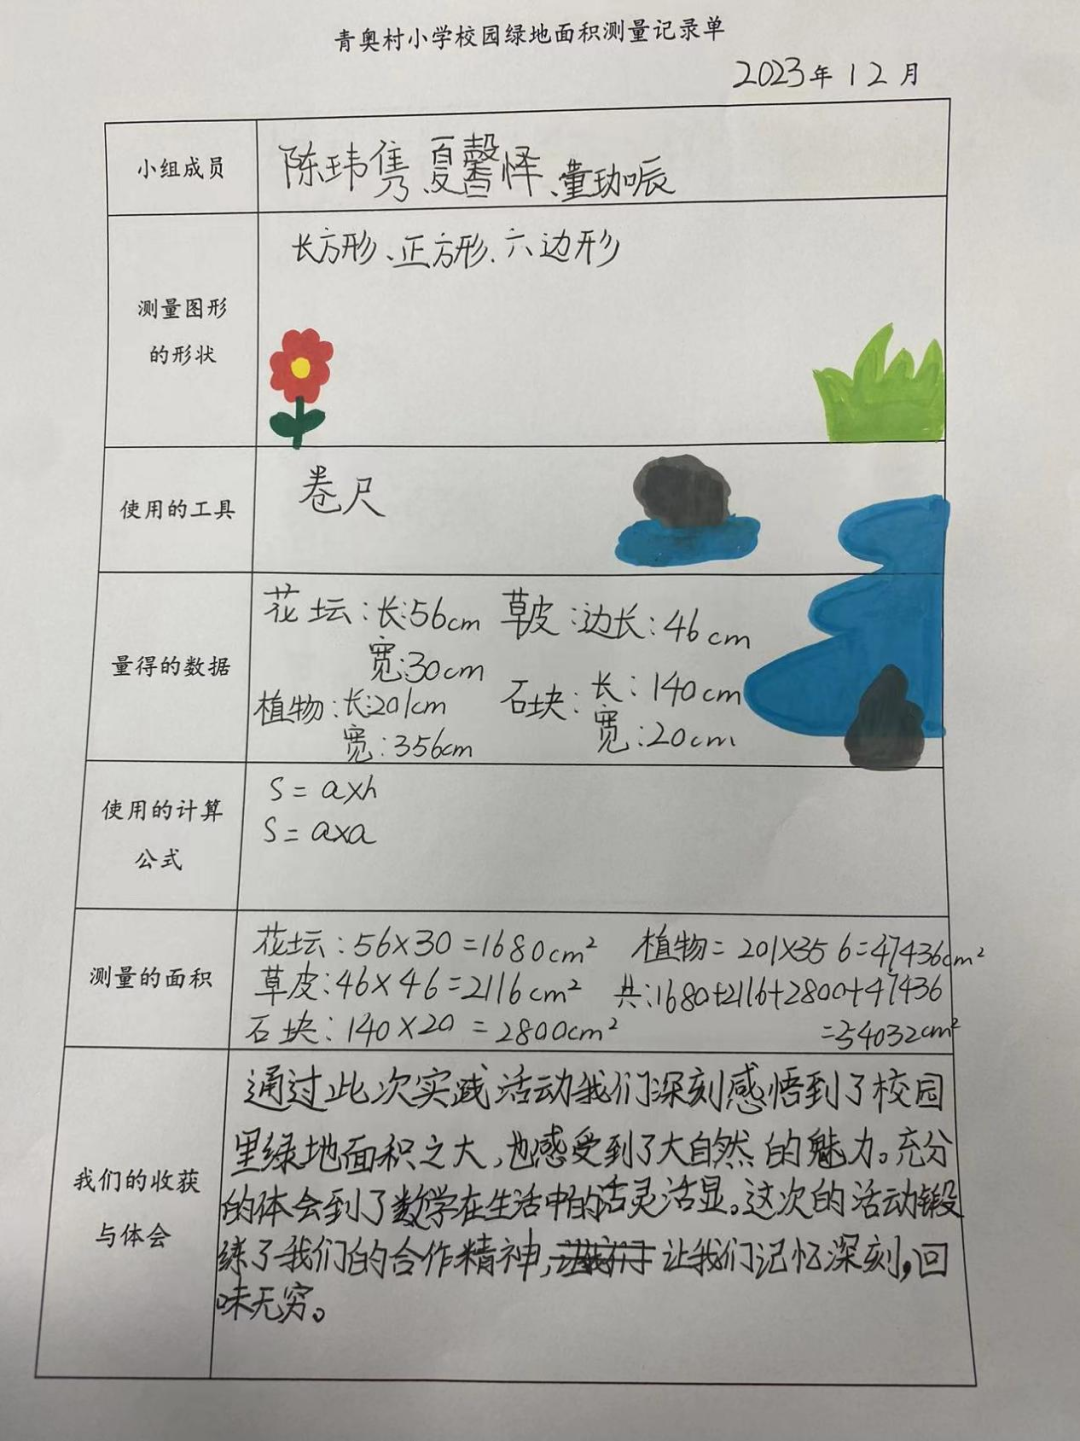 青奥村小学校园绿地面积测量记录单
2023年12月
小组成员
陈玮隽、夏馨怿、童玏哌
测量图形
的形状
长方形、正方形、六边形
使用的工具
卷尺
量得的数据
花坛:长:56cm 草皮:边长:46cm
宽:30cm
植物:长:201cm 石块:长:140cm
宽:356cm 宽:20cm
使用的计算
公式
S=a×h
S=a×a
测量的面积
花坛:56×30=1680cm² 植物=201×356=47436cm²
草皮:46×46=2116cm² 共:1680+2116+2800+47436
石块:140×20=2800cm² =54032cm²
我们的收获
与体会
通过此次实践活动我们深刻感悟到了校园
里绿地面积之大,也感受到了大自然的魅力。充分
的体会到了数学在生活中的活灵活显。这次的活动锻
练了我们的合作精神,让我们记忆深刻,回
味无穷。